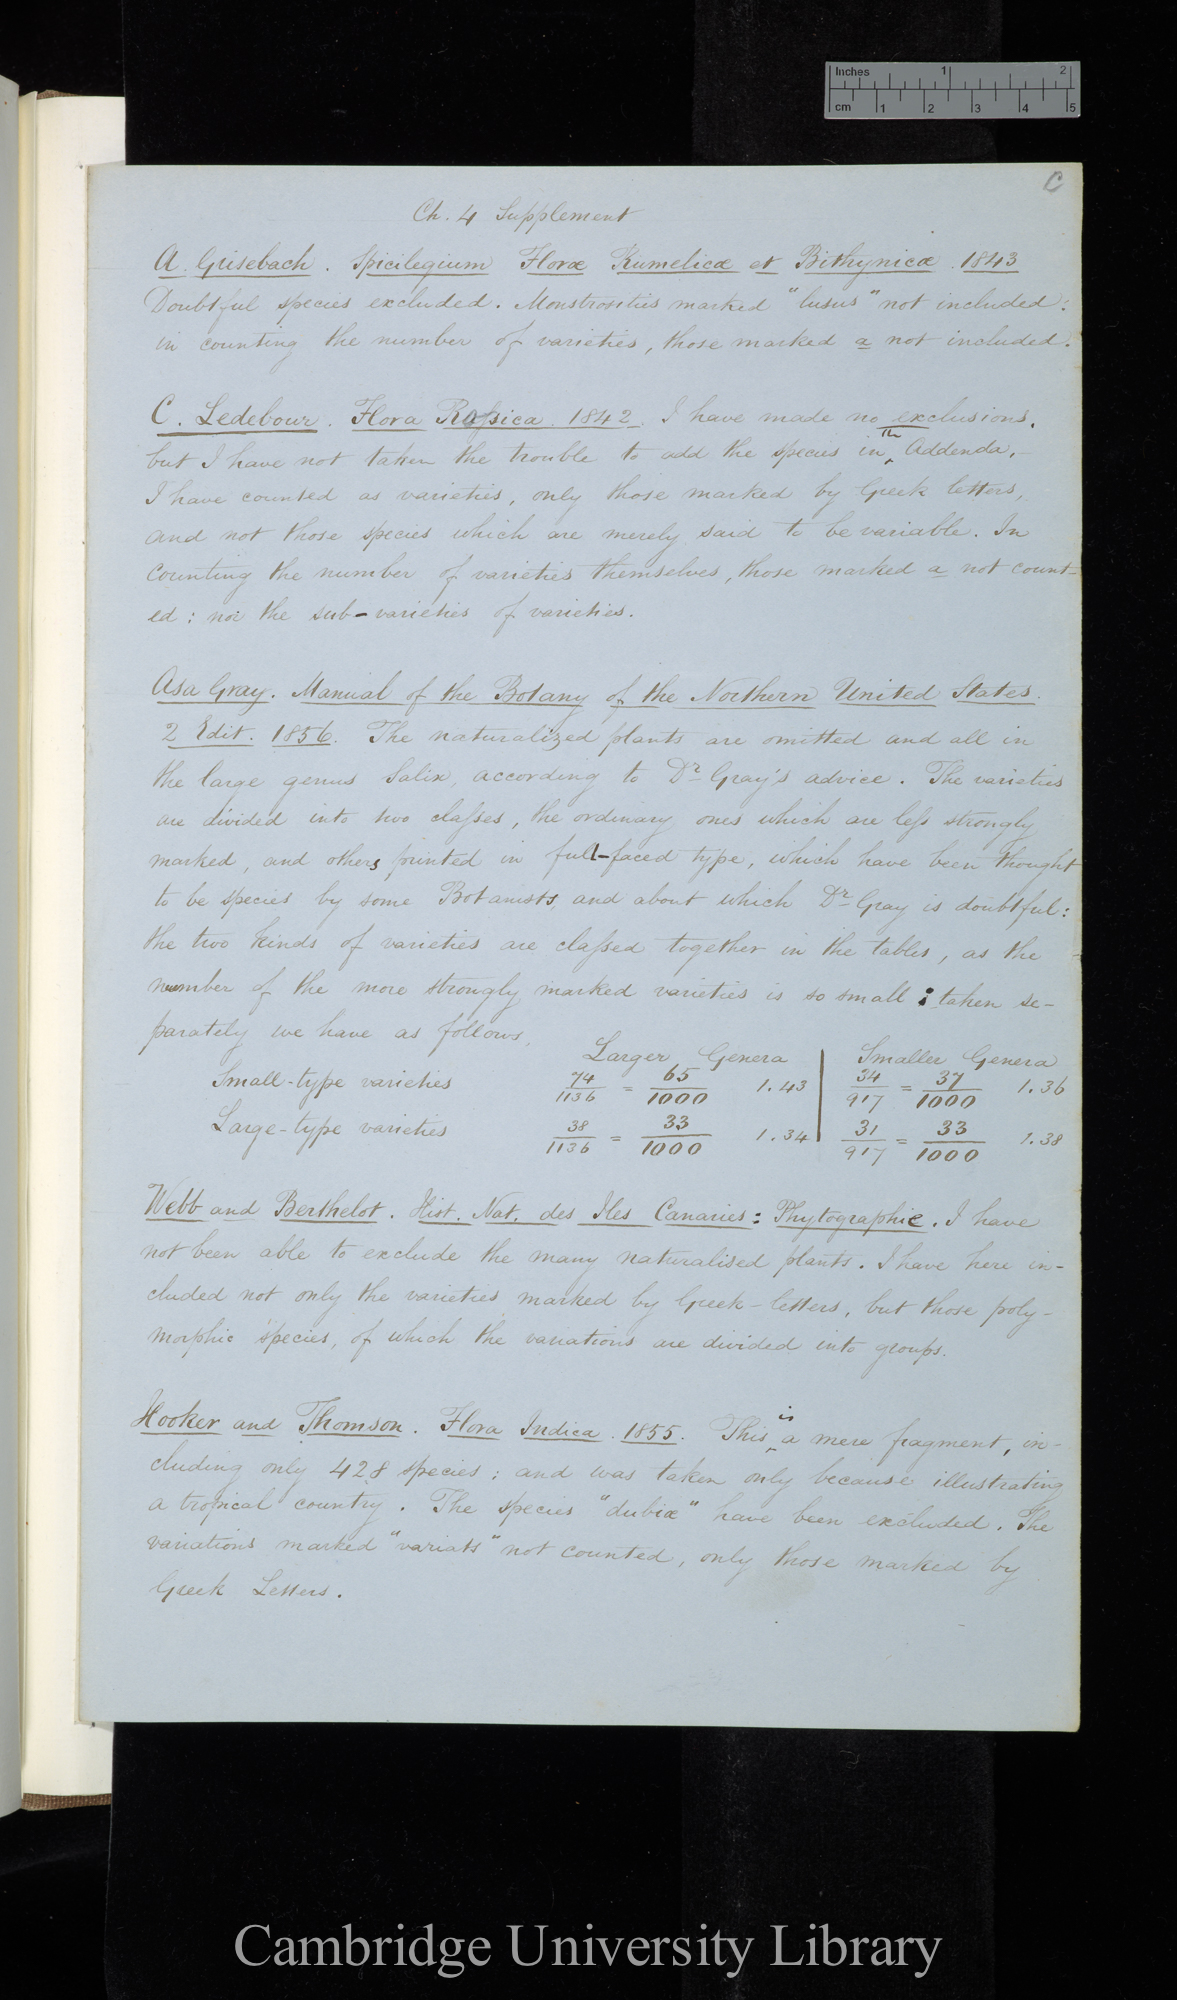 Inches 1 2
cm 1 2 3 4 5
C
Ch. 4 Supplement
A. Grisebach. Spicilegium Floræ Rumelicæ et Bithynicæ. 1843
Doubtful species excluded. Monstrosities marked "lusus" not included:
in counting the number of varieties, those marked a not included.
C. Ledebour. Flora Rossica. 1842. I have made no exclusions,
but I have not taken the trouble to add the species in the Addenda,-
I have counted as varieties, only those marked by Greek letters,
and not those species which are merely said to be variable. In
counting the number of varieties themselves, those marked a not count-
ed: nor the sub-varieties of varieties.
Asa Gray. Manual of the Botany of the Northern United States.
2 Edit. 1856. The naturalized plants are omitted and all in
the large genus Salix, according to Dr Gray's advice. The varieties
are divided into two classes, the ordinary ones which are less strongly
marked, and others printed in full-faced type, which have been thought
to be species by some Botanists, and about which Dr Gray is doubtful:
the two kinds of varieties are classed together in the tables, as the
number of the more strongly marked varieties is so small; taken se-
parately we have as follows,
Larger Genera | Smaller Genera
Small-type varieties 74/1136 = 65/1000 1.43 | 34/917 = 37/1000 1.36
Large-type varieties 38/1136 = 33/1000 1.34 | 31/917 = 33/1000 1.38
Webb and Berthelot. Hist. Nat. des Iles Canaries: Phytographie. I have
not been able to exclude the many naturalised plants. I have here in-
cluded not only the varieties marked by Greek-letters, but those poly-
morphic species, of which the variations are divided into groups.
Hooker and Thomson. Flora Indica. 1855. This is a mere fragment, in-
cluding only 428 species; and was taken only because illustrating
a tropical country. The species "dubiæ" have been excluded. The
variations marked "variats" not counted, only those marked by
Greek Letters.
Cambridge University Library